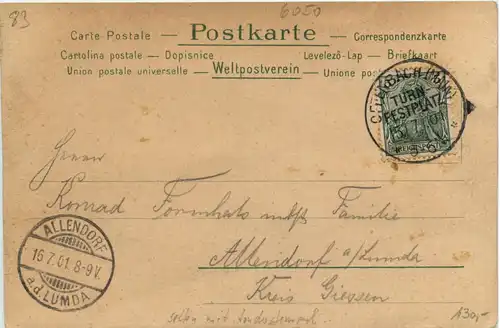 83
6050
Carte Postale — Postkarte — Correspondenzkarte
Cartolina postale — Dopisnice Levelező-Lap — Briefkaart
Union postale universelle — Weltpostverein — Unione post
TURN
FESTPLATZ
Herrn
Konrad Familie
Allendorf a/Lumda
Kreis Giessen
ALLENDORF
16.7.01. 8-9V.
a.d. LUMDA
selten mit
130,-